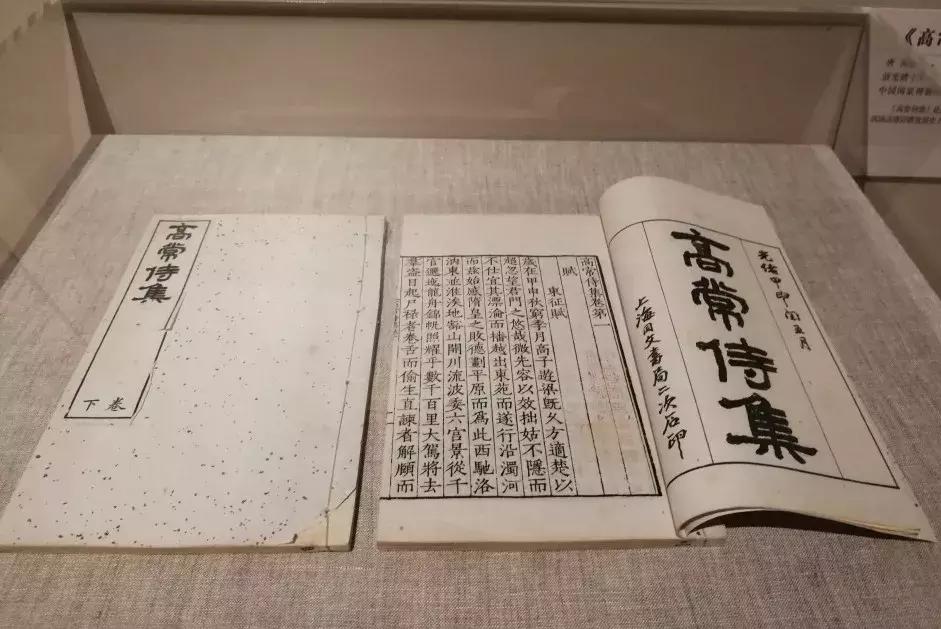 高常侍集
卷下
光绪甲申閏五月
高常侍集
上海同文書局二次石印
高常侍集卷第一
賦
東征賦
歲在甲申秋窮季月高子遊梁既久方適楚以
超忽望君門之悠哉微先容以效拙姑不隱而
不仕宜其漂淪而播越出東苑而遂行沿濁河
而兹始感隋皇之敗德劃平原而爲此西馳洛
汭東並淮涘地豁山開川流波委六宫景從千
官邐迤龍舟錦帆照耀乎數千百里大駕將去
羣盗日起尸禄者卷舌而偷生直諫者解頤而